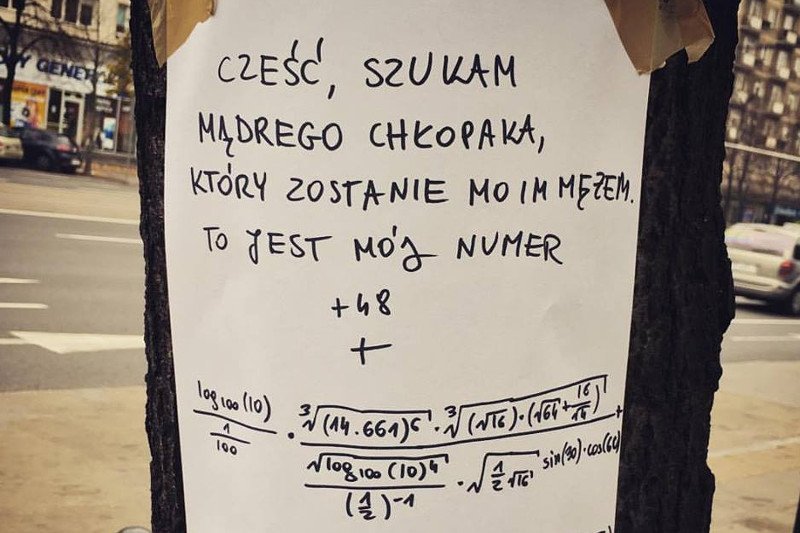 CZEŚĆ, SZUKAM
MĄDREGO CHŁOPAKA,
KTÓRY ZOSTANIE MOIM MĘŻEM.
TO JEST MÓJ NUMER
+48
+
log₁₀₀(10) / (1/100) · ∛((14.661)⁶) · ∛((√16)·(√64+16/14)) / ((√(log₁₀₀(10)⁴) / (1/2)⁻¹) · √(1/2 √16) sin(90)·cos(60)) +
GENER